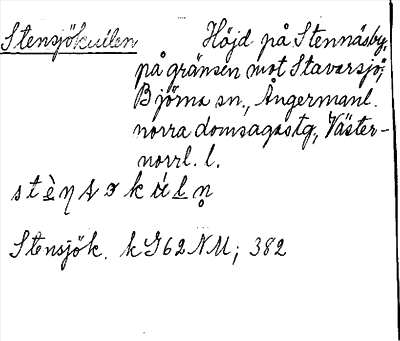 Stensjökullen Höjd på Stennäsby,
på gränsen mot Stavarsjö,
Björna sn., Ångermanl.
norra domsagas tg., Väster-
norrl. l.
Stensjök. k G62NU; 382